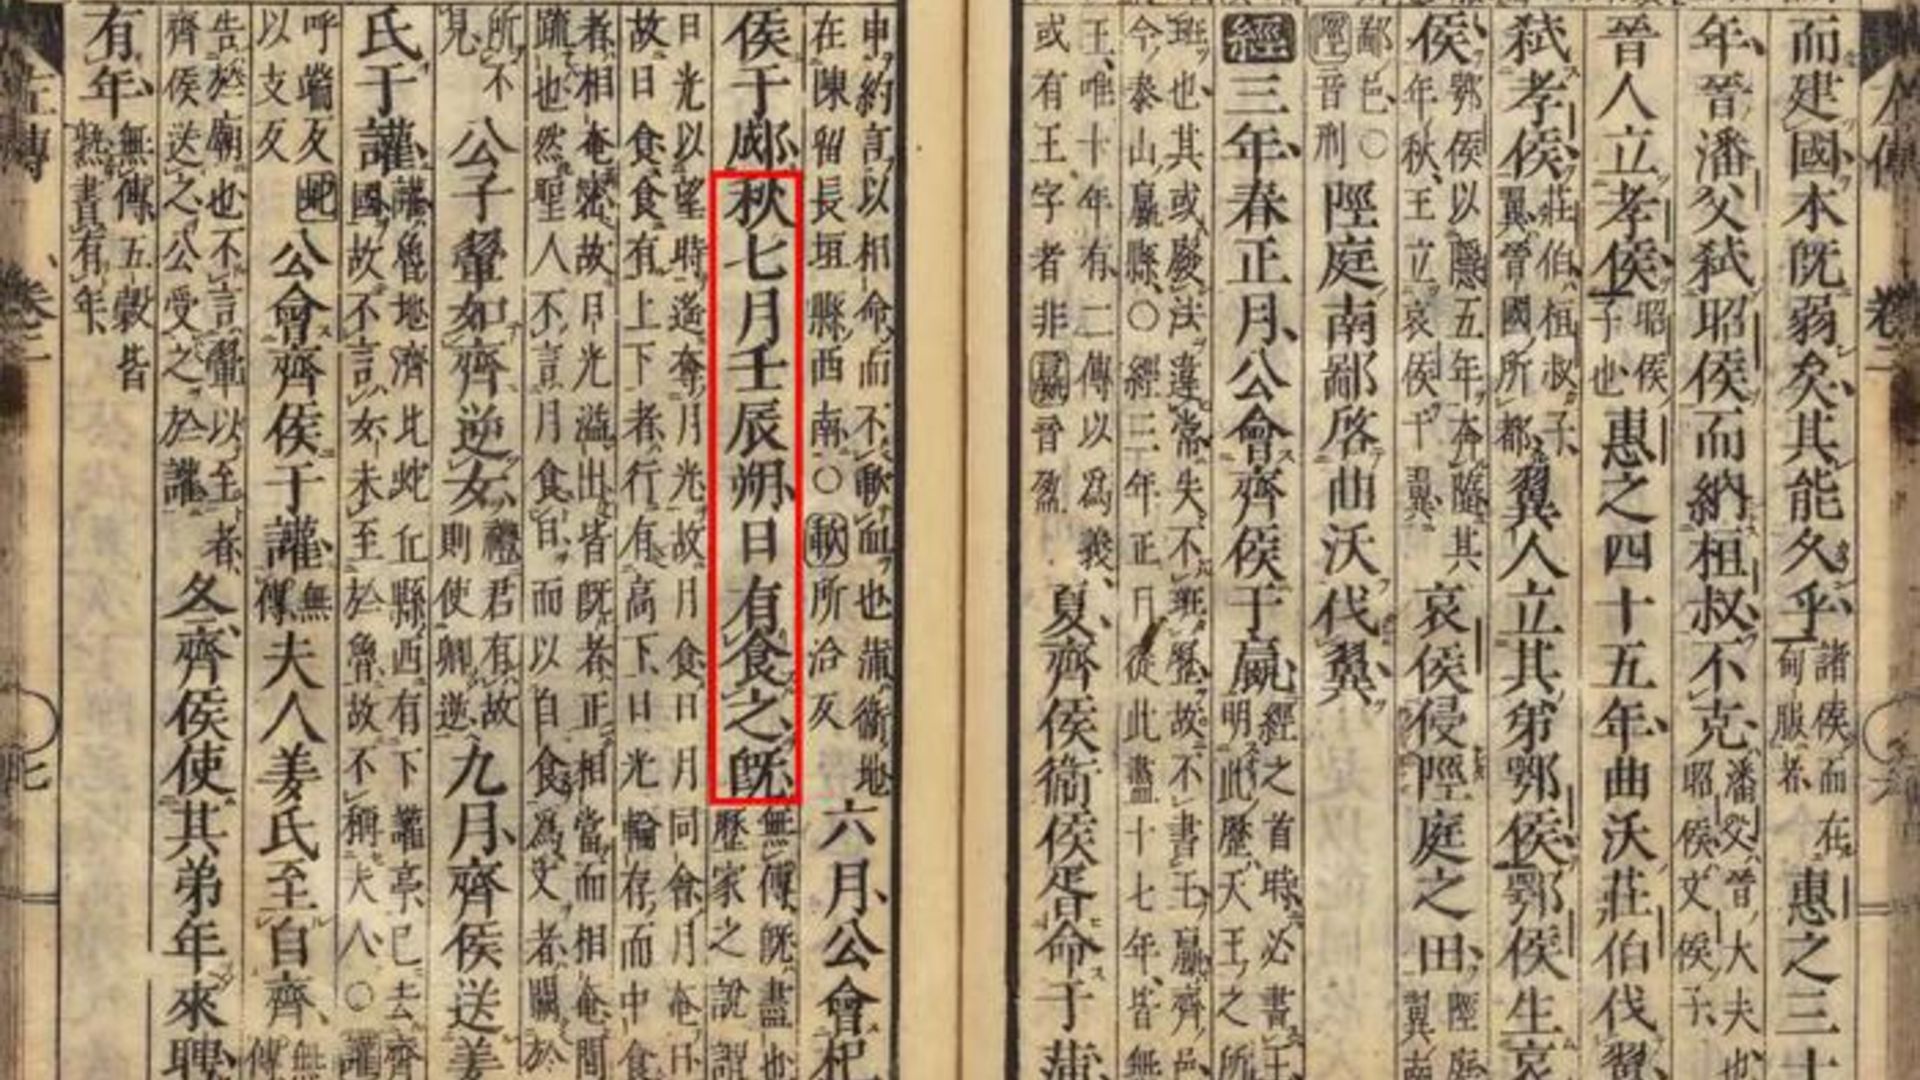 而建國本既弱矣其能久乎諸侯而在甸服者惠之三十
年晉潘父弒昭侯而納桓叔不克潘父晉大夫也昭侯文侯子
晉人立孝侯昭侯子也惠之四十五年曲沃莊伯伐翼
弒孝侯莊伯桓叔子翼晉國所都翼人立其弟鄂侯鄂侯生哀
侯鄂侯以隱五年奔隨其年秋王立哀侯于翼哀侯侵陘庭之田陘庭翼南
鄙邑○陘音刑陘庭南鄙啓曲沃伐翼
經三年春正月公會齊侯于嬴經之首時必書王明此歷天王之所
班也其或廢法違常失不班歷故不書王嬴齊邑今泰山嬴縣○經三年正月從此盡十七年皆無
王唯十年有二傳以爲義或有王字者非嬴音盈夏齊侯衛侯胥命于蒲
申約言以相命而不歃血也蒲衛地在陳留長垣縣西南○歃所洽反六月公會杞
侯于郕秋七月壬辰朔日有食之既無傳既盡也歷家之說
日光以望時遙奪月光故月食日月同會月奄日故日食食有上下者行有高下日光輪存而中食
者相奄密故日光溢出皆既者正相當而相奄間疏也然聖人不言月食日而以自食爲文者闕於
所不見公子翬如齊逆女禮君有故則使卿逆九月齊侯送姜
氏于讙讙魯地濟北蛇丘縣西有下讙亭已去齊國故不言女未至於魯故不稱夫人○讙
呼端反蛇以支反公會齊侯于讙無傳夫人姜氏至自齊無傳
告於廟也不言翬以至者齊侯送之公受之於讙冬齊侯使其弟年來聘
有年無傳五穀皆熟書有年
左傳 卷二